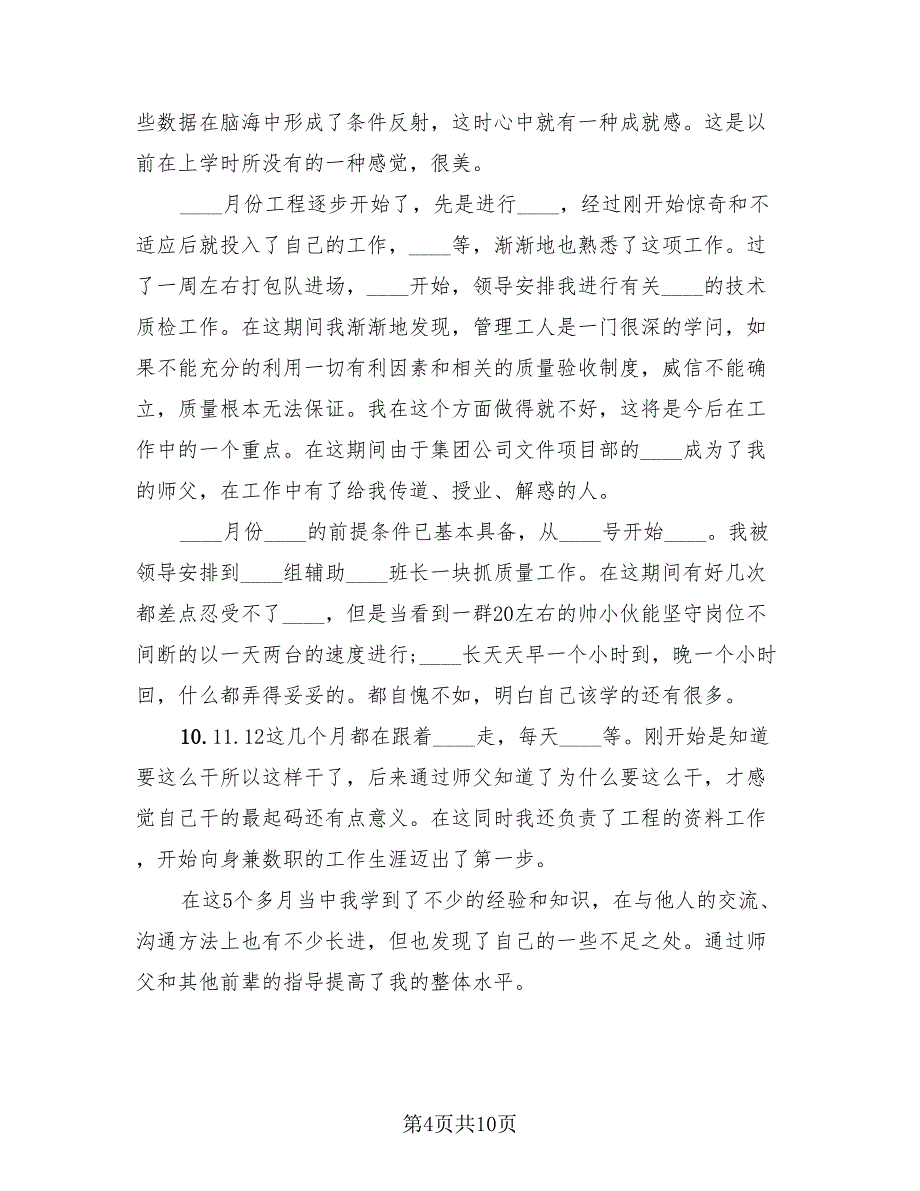 些数据在脑海中形成了条件反射，这时心中就有一种成就感。这是以
前在上学时所没有的一种感觉，很美。
____月份工程逐步开始了，先是进行____，经过刚开始惊奇和不
适应后就投入了自己的工作，____等，渐渐地也熟悉了这项工作。过
了一周左右打包队进场，____开始，领导安排我进行有关____的技术
质检工作。在这期间我渐渐地发现，管理工人是一门很深的学问，如
果不能充分的利用一切有利因素和相关的质量验收制度，威信不能确
立，质量根本无法保证。我在这个方面做得就不好，这将是今后在工
作中的一个重点。在这期间由于集团公司文件项目部的____成为了我
的师父，在工作中有了给我传道、授业、解惑的人。
____月份____的前提条件已基本具备，从____号开始____。我被
领导安排到____组辅助____班长一块抓质量工作。在这期间有好几次
都差点忍受不了____，但是当看到一群20左右的帅小伙能坚守岗位不
间断的以一天两台的速度进行;____长天天早一个小时到，晚一个小时
回，什么都弄得妥妥的。都自愧不如，明白自己该学的还有很多。
10.11.12这几个月都在跟着____走，每天____等。刚开始是知道
要这么干所以这样干了，后来通过师父知道了为什么要这么干，才感
觉自己干的最起码还有点意义。在这同时我还负责了工程的资料工作
，开始向身兼数职的工作生涯迈出了第一步。
在这5个多月当中我学到了不少的经验和知识，在与他人的交流、
沟通方法上也有不少长进，但也发现了自己的一些不足之处。通过师
父和其他前辈的指导提高了我的整体水平。
第4页共10页